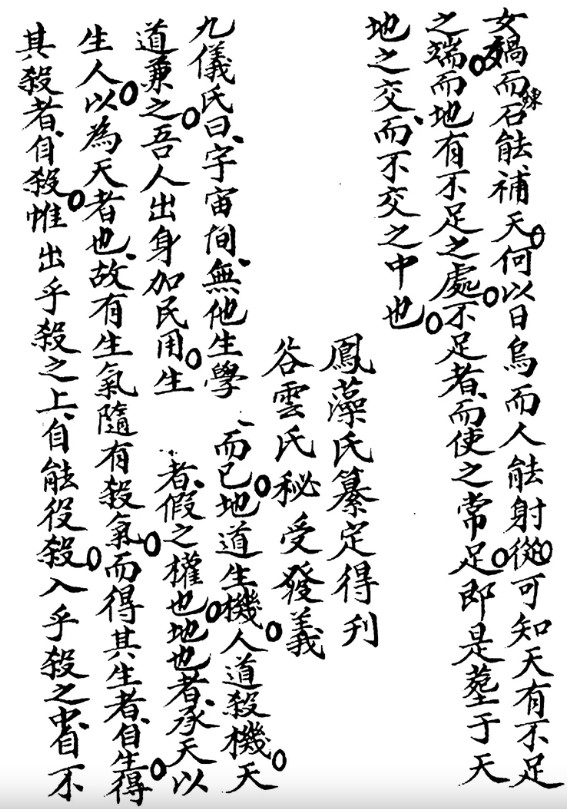 女媧而鍊石能補天何以日烏而人能射從可知天有不足
之端而地有不足之處不足者而使之常足即是塟于天
地之交而不交之中也
鳳藻氏纂定得刊
谷雲氏秘受發義
九儀氏曰字宙間無他生學而已地道生機人道殺機天
道兼之吾人出身加民用生者假之權也地也者承天以
生人以為天者也故有生氣隨有殺氣而得其生者自生得
其殺者自殺惟出乎殺之上自能役殺入乎殺之中自不